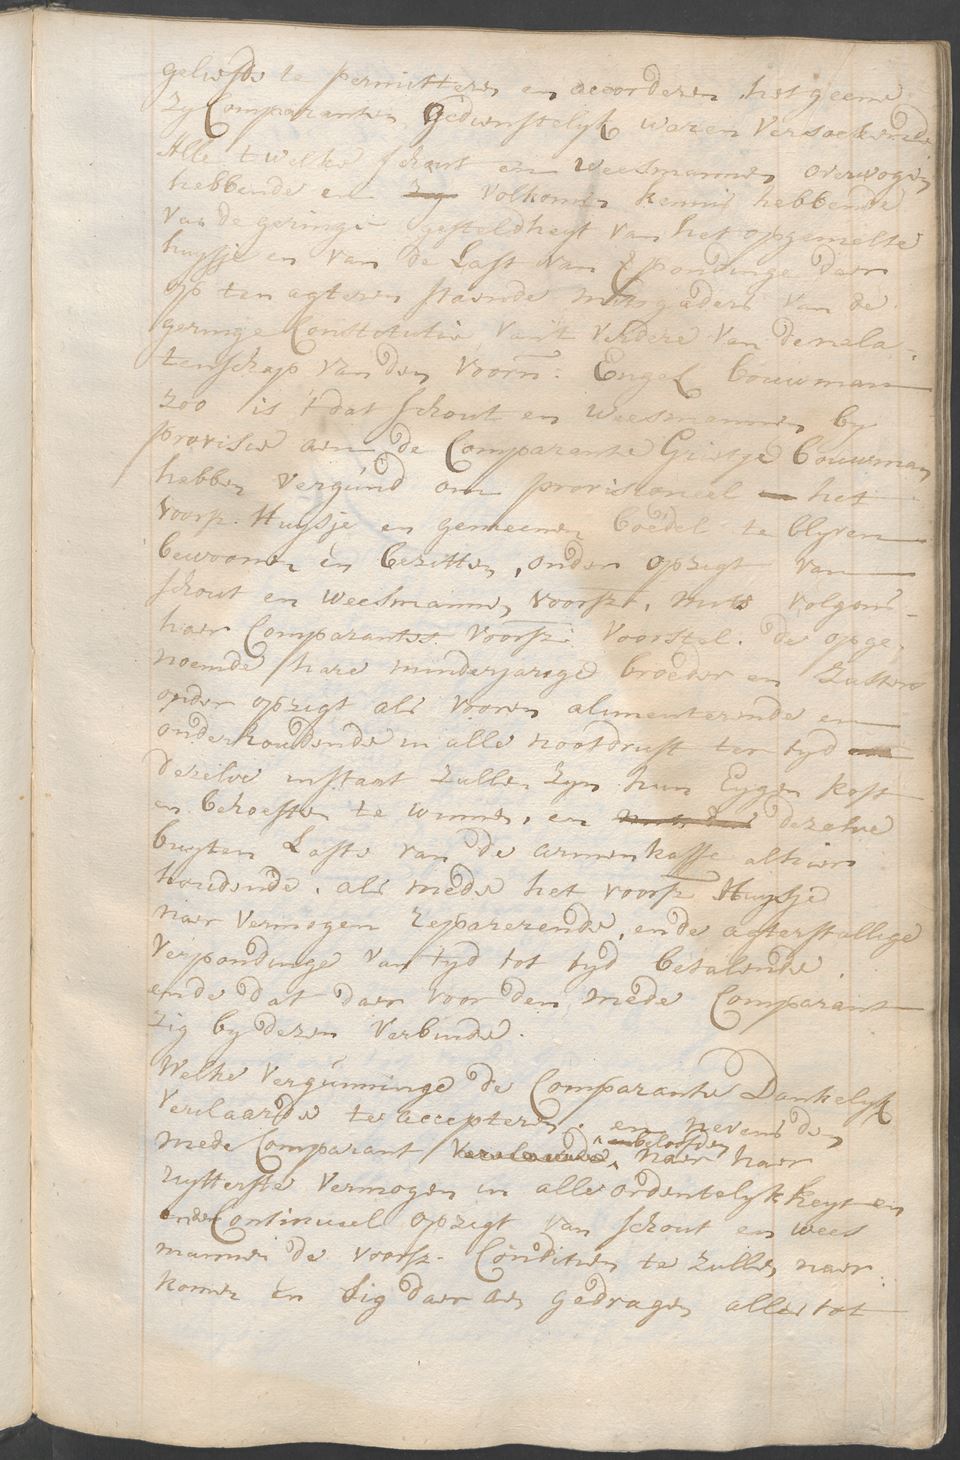 geliefde te permitteren en accorderen, hetgeene
zy Comparanten gedienstelyk waren versoekende
Alle 't welke schout en weesmannen overwogen
hebbende en zig volkomen kennis hebbende
van de geringe gesteldheyt van het opgemelte
huysje en van de Last van verpondinge daer
op ten agteren staende mitsgaders van de
geringe Constitutie van't verdere van de nala-
tenschap van den voorn: Engel Bouwman
zoo is 't dat schout en weesmannen by
provisie aen de Comparante Grietje Bouwman
hebben vergúnd om provisioneel het
voorsz. Huysje en gemeenen boedel te blyven
bewoonen en bezitten, onder opzigt van
schout en weesmannen voorsz. mits volgens
haer Comparantes voorsz: voorstel. de opge-
noemde hare minderjarige broeder en zusters
onder opzigt als vooren alimenterende en
onderhoudende in alle nootdruft ter tyd
dezelve in staat zullen zyn hun Eygen kost
en behoeften te winnen, en dezelve
buyten Laste van de armen kasse alhier
houdende. als mede het voorsz Huysje
naer vermogen repareerende, ende agterstallige
verpondinge van tyd tot tyd betalende.
ende dat daer voor den mede Comparant
zig by dezen verbinde.
Welke vergunninge de Comparante Dankelyk
verclaarde te accepteren. en nevens den
mede Comparant beloofden naer haer
uytterste vermogen in alle ordentelykheyt en
onder Continueel opzigt van schout en wees
mannen de voorsz. Conditien te zullen naer
komen en sig daer aen gedragen alles tot